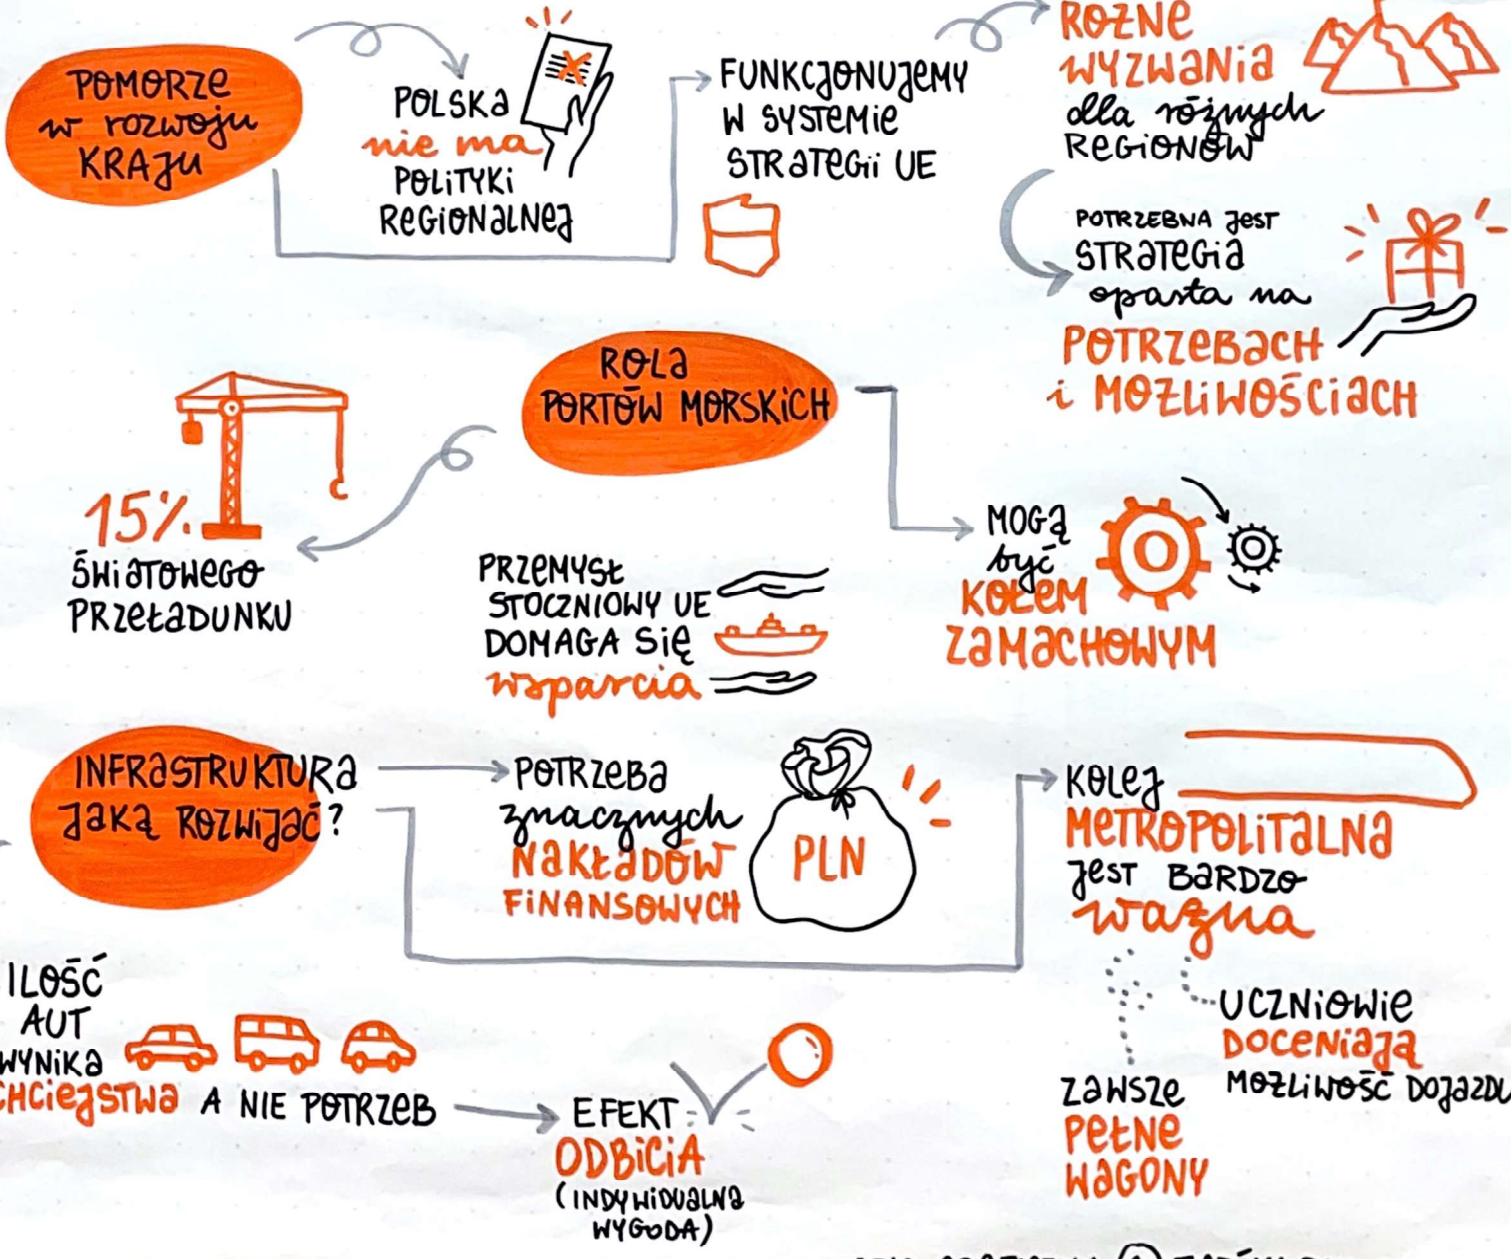 POMORZE
w rozwoju
KRAJU
POLSKA
nie ma
POLITYKI
REGIONALNEJ
FUNKCJONUJEMY
W SYSTEMIE
STRATEGII UE
RÓŻNE
WYZWANIA
dla różnych
REGIONÓW
POTRZEBNA JEST
STRATEGIA
oparta na
POTRZEBACH
i MOŻLIWOŚCIACH
ROLA
PORTÓW MORSKICH
15%
ŚWIATOWEGO
PRZEŁADUNKU
PRZEMYSŁ
STOCZNIOWY UE
DOMAGA SIĘ
wsparcia
MOGĄ
być
KOŁEM
ZAMACHOWYM
INFRASTRUKTURA
JAKĄ ROZWIJAĆ?
POTRZEBA
znacznych
NAKŁADÓW
FINANSOWYCH
PLN
KOLEJ
METROPOLITALNA
JEST BARDZO
ważna
UCZNIOWIE
DOCENIAJĄ
MOŻLIWOŚĆ DOJAZDU
ZAWSZE
PEŁNE
WAGONY
ILOŚĆ
AUT
WYNIKA
CHCIEJSTWA A NIE POTRZEB
EFEKT
ODBICIA
(INDYWIDUALNA
WYGODA)